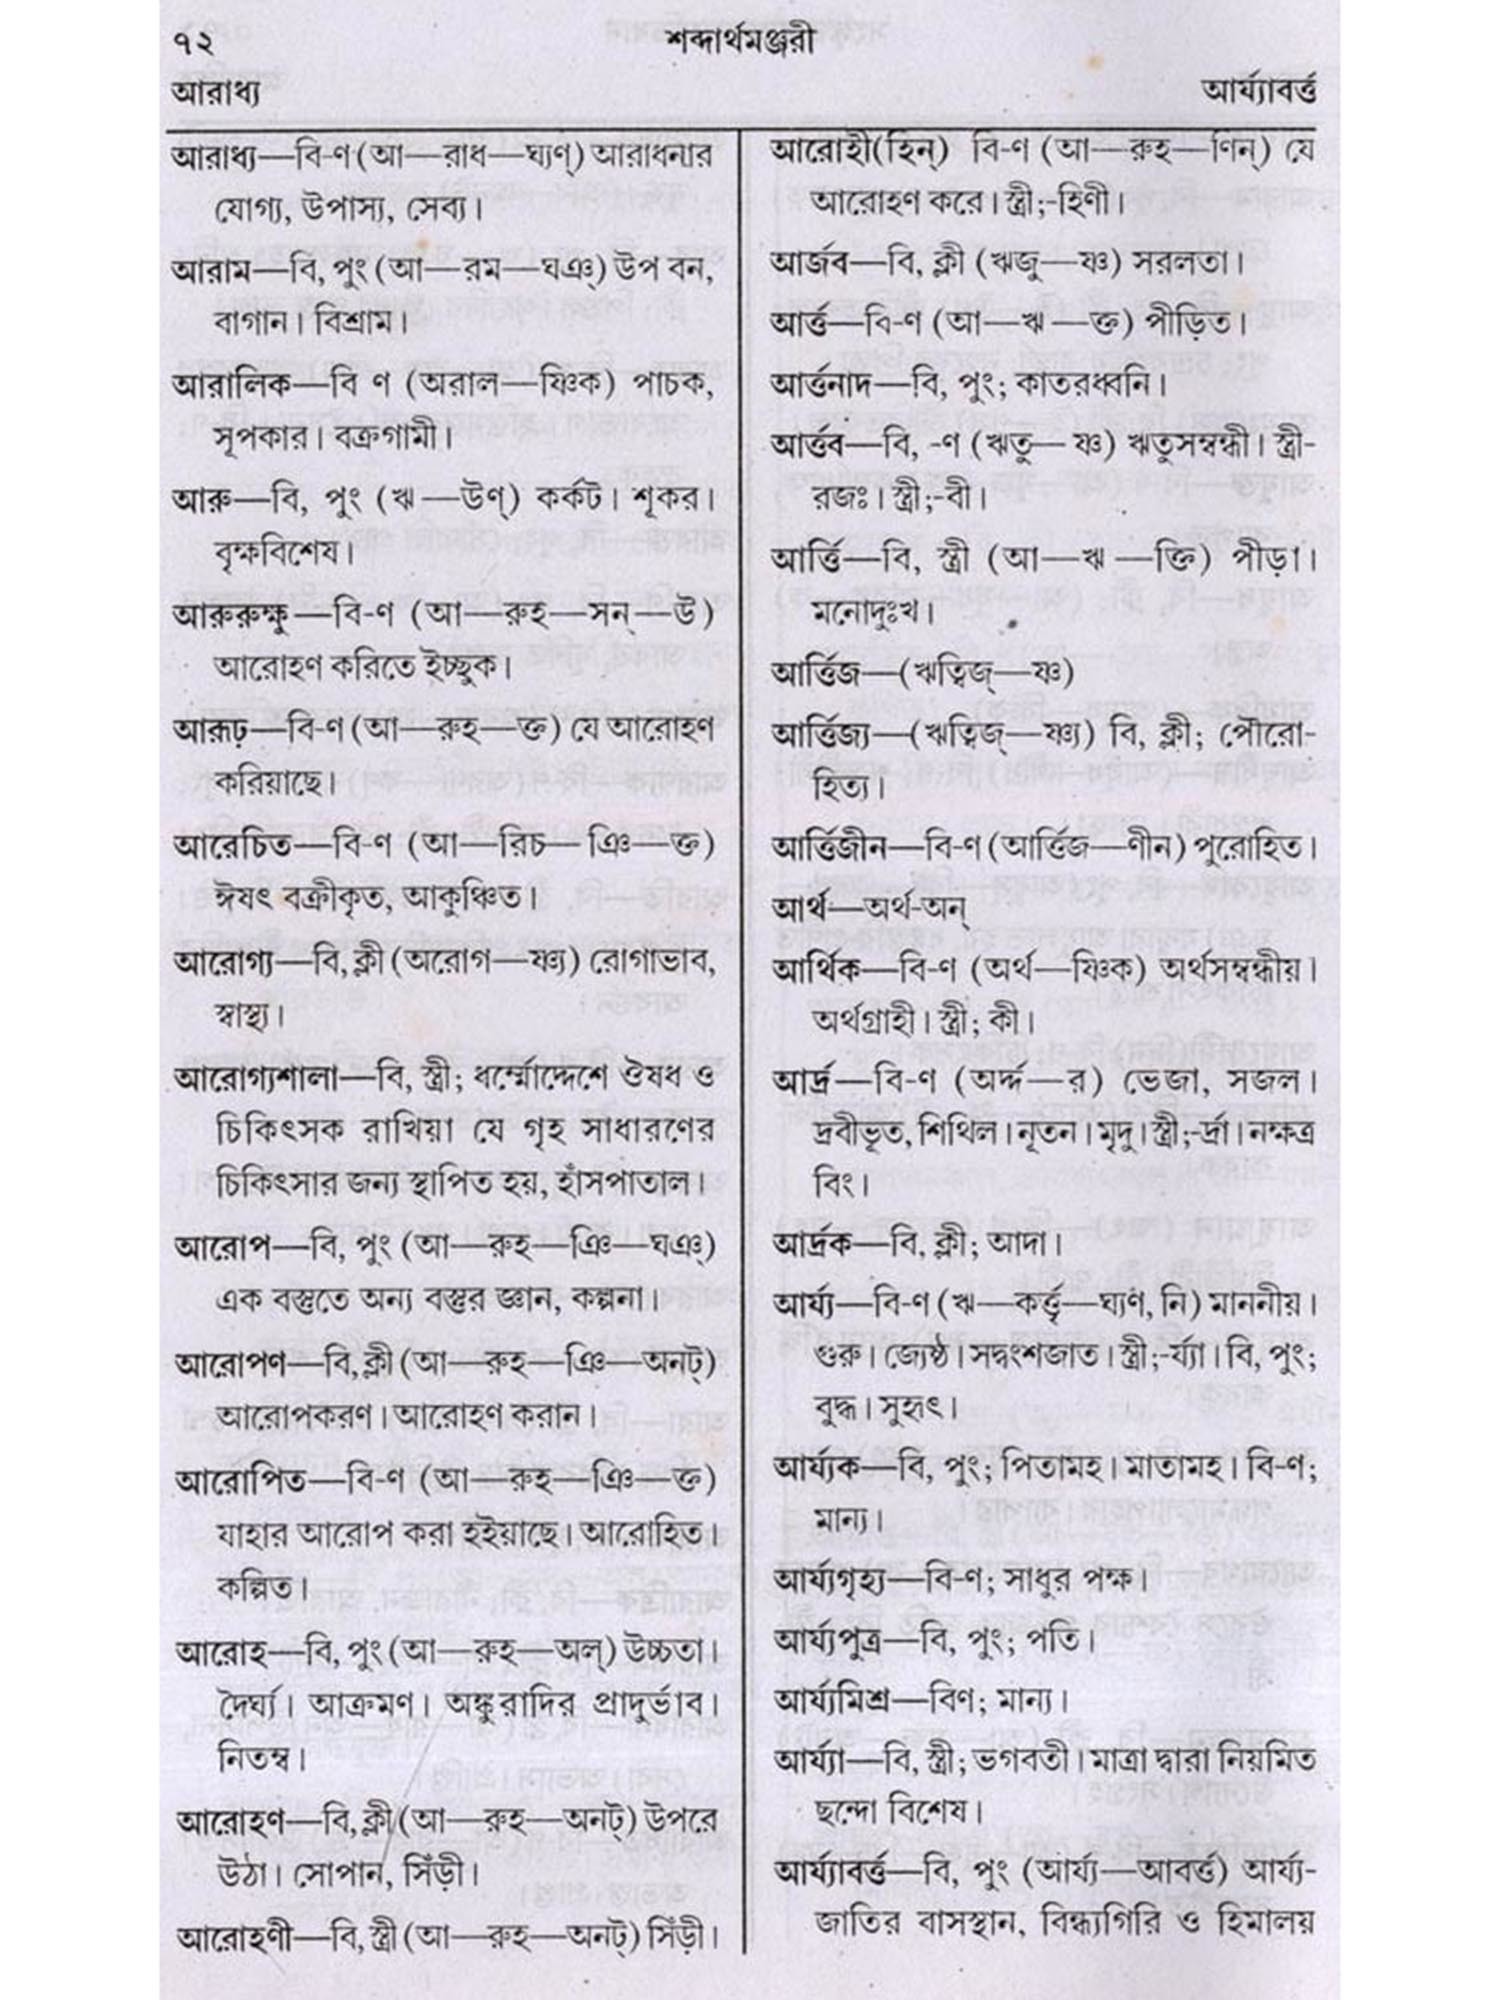 ৭২
শব্দার্থমঞ্জরী
আরাধ্য
আর্য্যাবর্ত্ত
আরাধ্য—বি-ণ (আ—রাধ—ঘ্যণ্) আরাধনার
যোগ্য, উপাস্য, সেব্য।
আরাম—বি, পুং (আ—রম—ঘঞ্) উপ বন,
বাগান। বিশ্রাম।
আরালিক—বি ণ (অরাল—ষ্ণিক) পাচক,
সূপকার। বক্রগামী।
আরু—বি, পুং (ঋ —উণ্) কর্কট। শূকর।
বৃক্ষবিশেষ।
আরুরুক্ষু—বি-ণ (আ—রুহ—সন্—উ)
আরোহণ করিতে ইচ্ছুক।
আরূঢ়—বি-ণ (আ—রুহ—ক্ত) যে আরোহণ
করিয়াছে।
আরেচিত—বি-ণ (আ—রিচ—ঞি—ক্ত)
ঈষৎ বক্রীকৃত, আকুঞ্চিত।
আরোগ্য—বি, ক্লী (অরোগ—ষ্ণ্য) রোগাভাব,
স্বাস্থ্য।
আরোগ্যশালা—বি, স্ত্রী; ধর্ম্মোদ্দেশে ঔষধ ও
চিকিৎসক রাখিয়া যে গৃহ সাধারণের
চিকিৎসার জন্য স্থাপিত হয়, হাঁসপাতাল।
আরোপ—বি, পুং (আ—রুহ—ঞি—ঘঞ্)
এক বস্তুতে অন্য বস্তুর জ্ঞান, কল্পনা।
আরোপণ—বি, ক্লী (আ—রুহ—ঞি—অনট্)
আরোপকরণ। আরোহণ করান।
আরোপিত—বি-ণ (আ—রুহ—ঞি—ক্ত)
যাহার আরোপ করা হইয়াছে। আরোহিত।
কল্পিত।
আরোহ—বি, পুং (আ—রুহ—অল্) উচ্চতা।
দৈর্ঘ্য। আক্রমণ। অঙ্কুরাদির প্রাদুর্ভাব।
নিতম্ব।
আরোহণ—বি, ক্লী (আ—রুহ—অনট্) উপরে
উঠা। সোপান, সিঁড়ী।
আরোহণী—বি, স্ত্রী (আ—রুহ—অনট্) সিঁড়ী।
আরোহী(হিন্) বি-ণ (আ—রুহ—ণিন্) যে
আরোহণ করে। স্ত্রী;-হিণী।
আর্জব—বি, ক্লী (ঋজু—ষ্ণ) সরলতা।
আর্ত্ত—বি-ণ (আ—ঋ —ক্ত) পীড়িত।
আর্ত্তনাদ—বি, পুং; কাতরধ্বনি।
আর্ত্তব—বি, -ণ (ঋতু— ষ্ণ) ঋতুসম্বন্ধী। স্ত্রী-
রজঃ। স্ত্রী;-বী।
আর্ত্তি—বি, স্ত্রী (আ—ঋ —ক্তি) পীড়া।
মনোদুঃখ।
আর্ত্তিজ—(ঋত্বিজ্—ষ্ণ)
আর্ত্তিজ্য—(ঋত্বিজ্—ষ্ণ্য) বি, ক্লী; পৌরো-
হিত্য।
আর্ত্তিজীন—বি-ণ (আর্ত্তিজ—ণীন) পুরোহিত।
আর্থ—অর্থ-অন্
আর্থিক—বি-ণ (অর্থ—ষ্ণিক) অর্থসম্বন্ধীয়।
অর্থগ্রাহী। স্ত্রী; কী।
আর্দ্র—বি-ণ (অর্দ্দ—র) ভেজা, সজল।
দ্রবীভূত, শিথিল। নূতন। মৃদু। স্ত্রী;-র্দ্রা। নক্ষত্র
বিং।
আর্দ্রক—বি, ক্লী; আদা।
আর্য্য—বি-ণ (ঋ—কর্ত্তৃ—ঘ্যণ, নি) মাননীয়।
গুরু। জ্যেষ্ঠ। সদ্বংশজাত। স্ত্রী;-র্য্যা। বি, পুং;
বুদ্ধ। সুহৃৎ।
আর্য্যক—বি, পুং; পিতামহ। মাতামহ। বি-ণ;
মান্য।
আর্য্যগৃহ্য—বি-ণ; সাধুর পক্ষ।
আর্য্যপুত্র—বি, পুং; পতি।
আর্য্যমিশ্র—বিণ; মান্য।
আর্য্যা—বি, স্ত্রী; ভগবতী। মাত্রা দ্বারা নিয়মিত
ছন্দো বিশেষ।
আর্য্যাবর্ত্ত—বি, পুং (আর্য্য—আবর্ত্ত) আর্য্য-
জাতির বাসস্থান, বিন্ধ্যগিরি ও হিমালয়